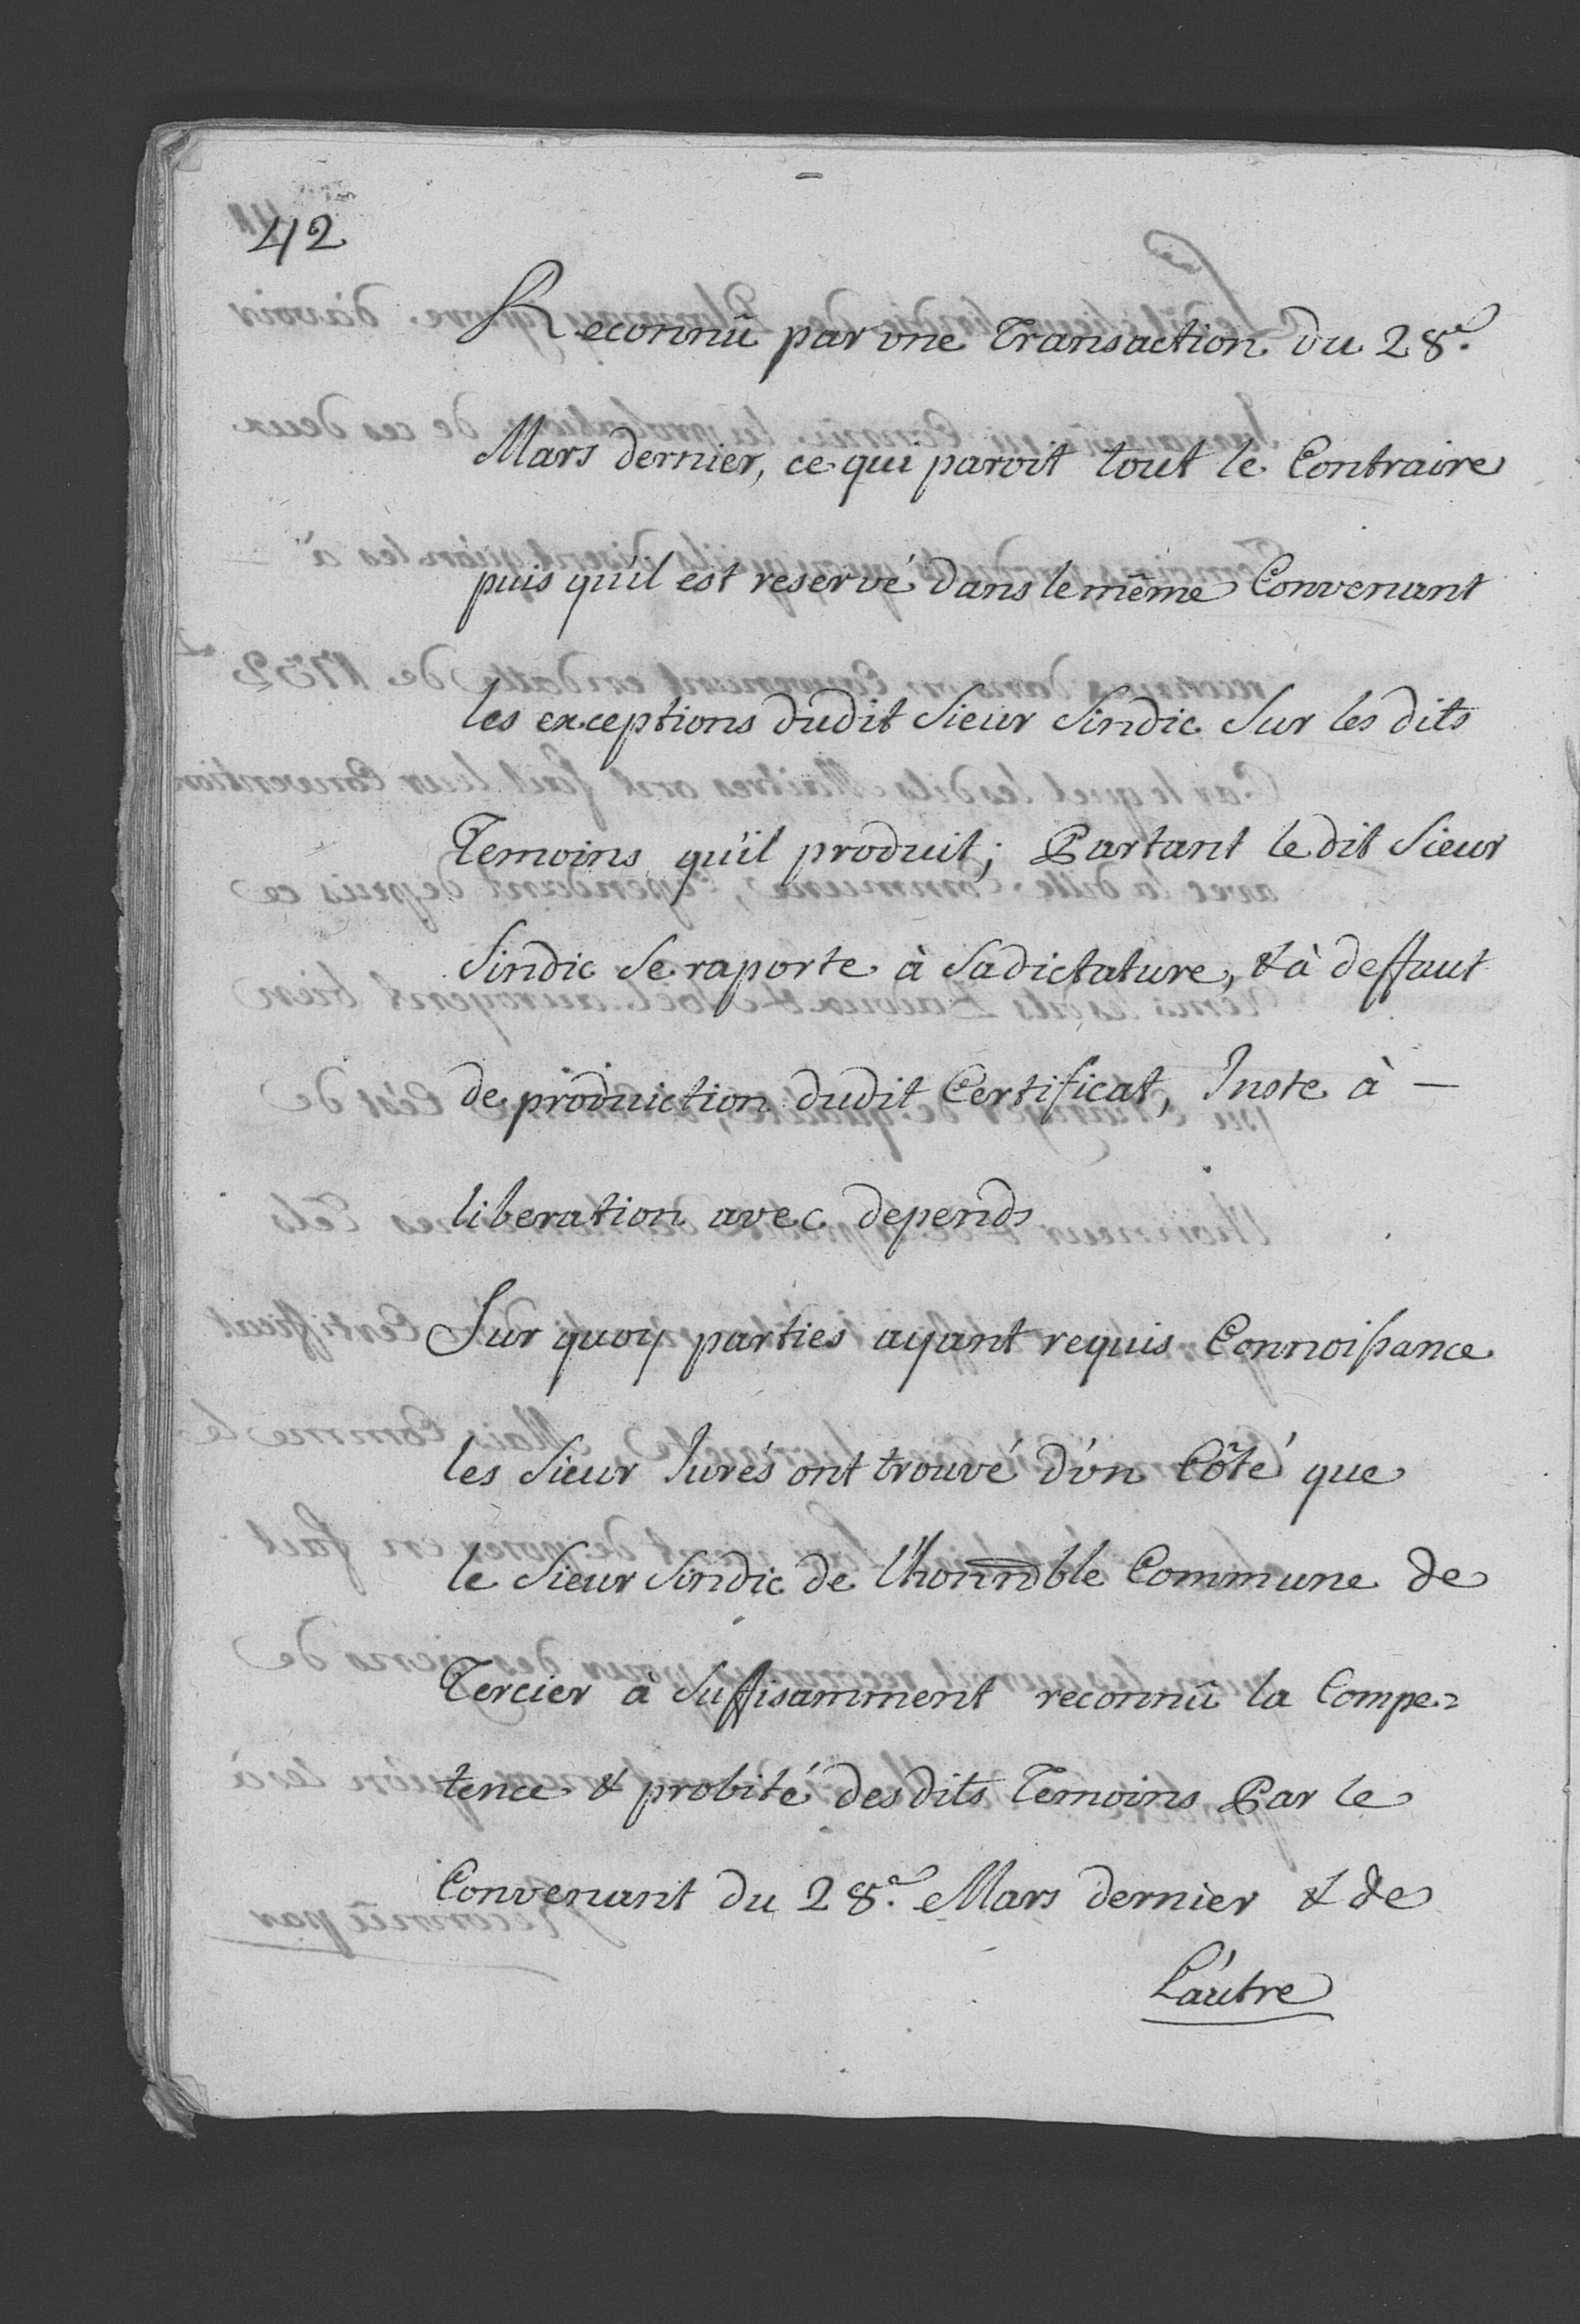 42
Reconnû par vne Transaction du 28.e
Mars dernier, ce qui paroit tout le Contraire
puis qu'il est reservé dans le même Convenant
les exceptions dudit Sieur Sindic Sur les dits
Temoins qu'il produit; Partant le dit Sieur
Sindic Se raporte à Sa dictature, & à deffaut
de production dudit Certificat, Inste à —
liberation avec depends
Sur quoy parties ayant requis Connoißance
les Sieur Jurés ont trouvé d'vn Côté que
le Sieur Sindic de l'honnble Commune de
Tercier à Suffisamment reconnû la Compe=
tence & probité des dits Temoins Par le
Convenant du 28.e Mars dernier & de
L'autre